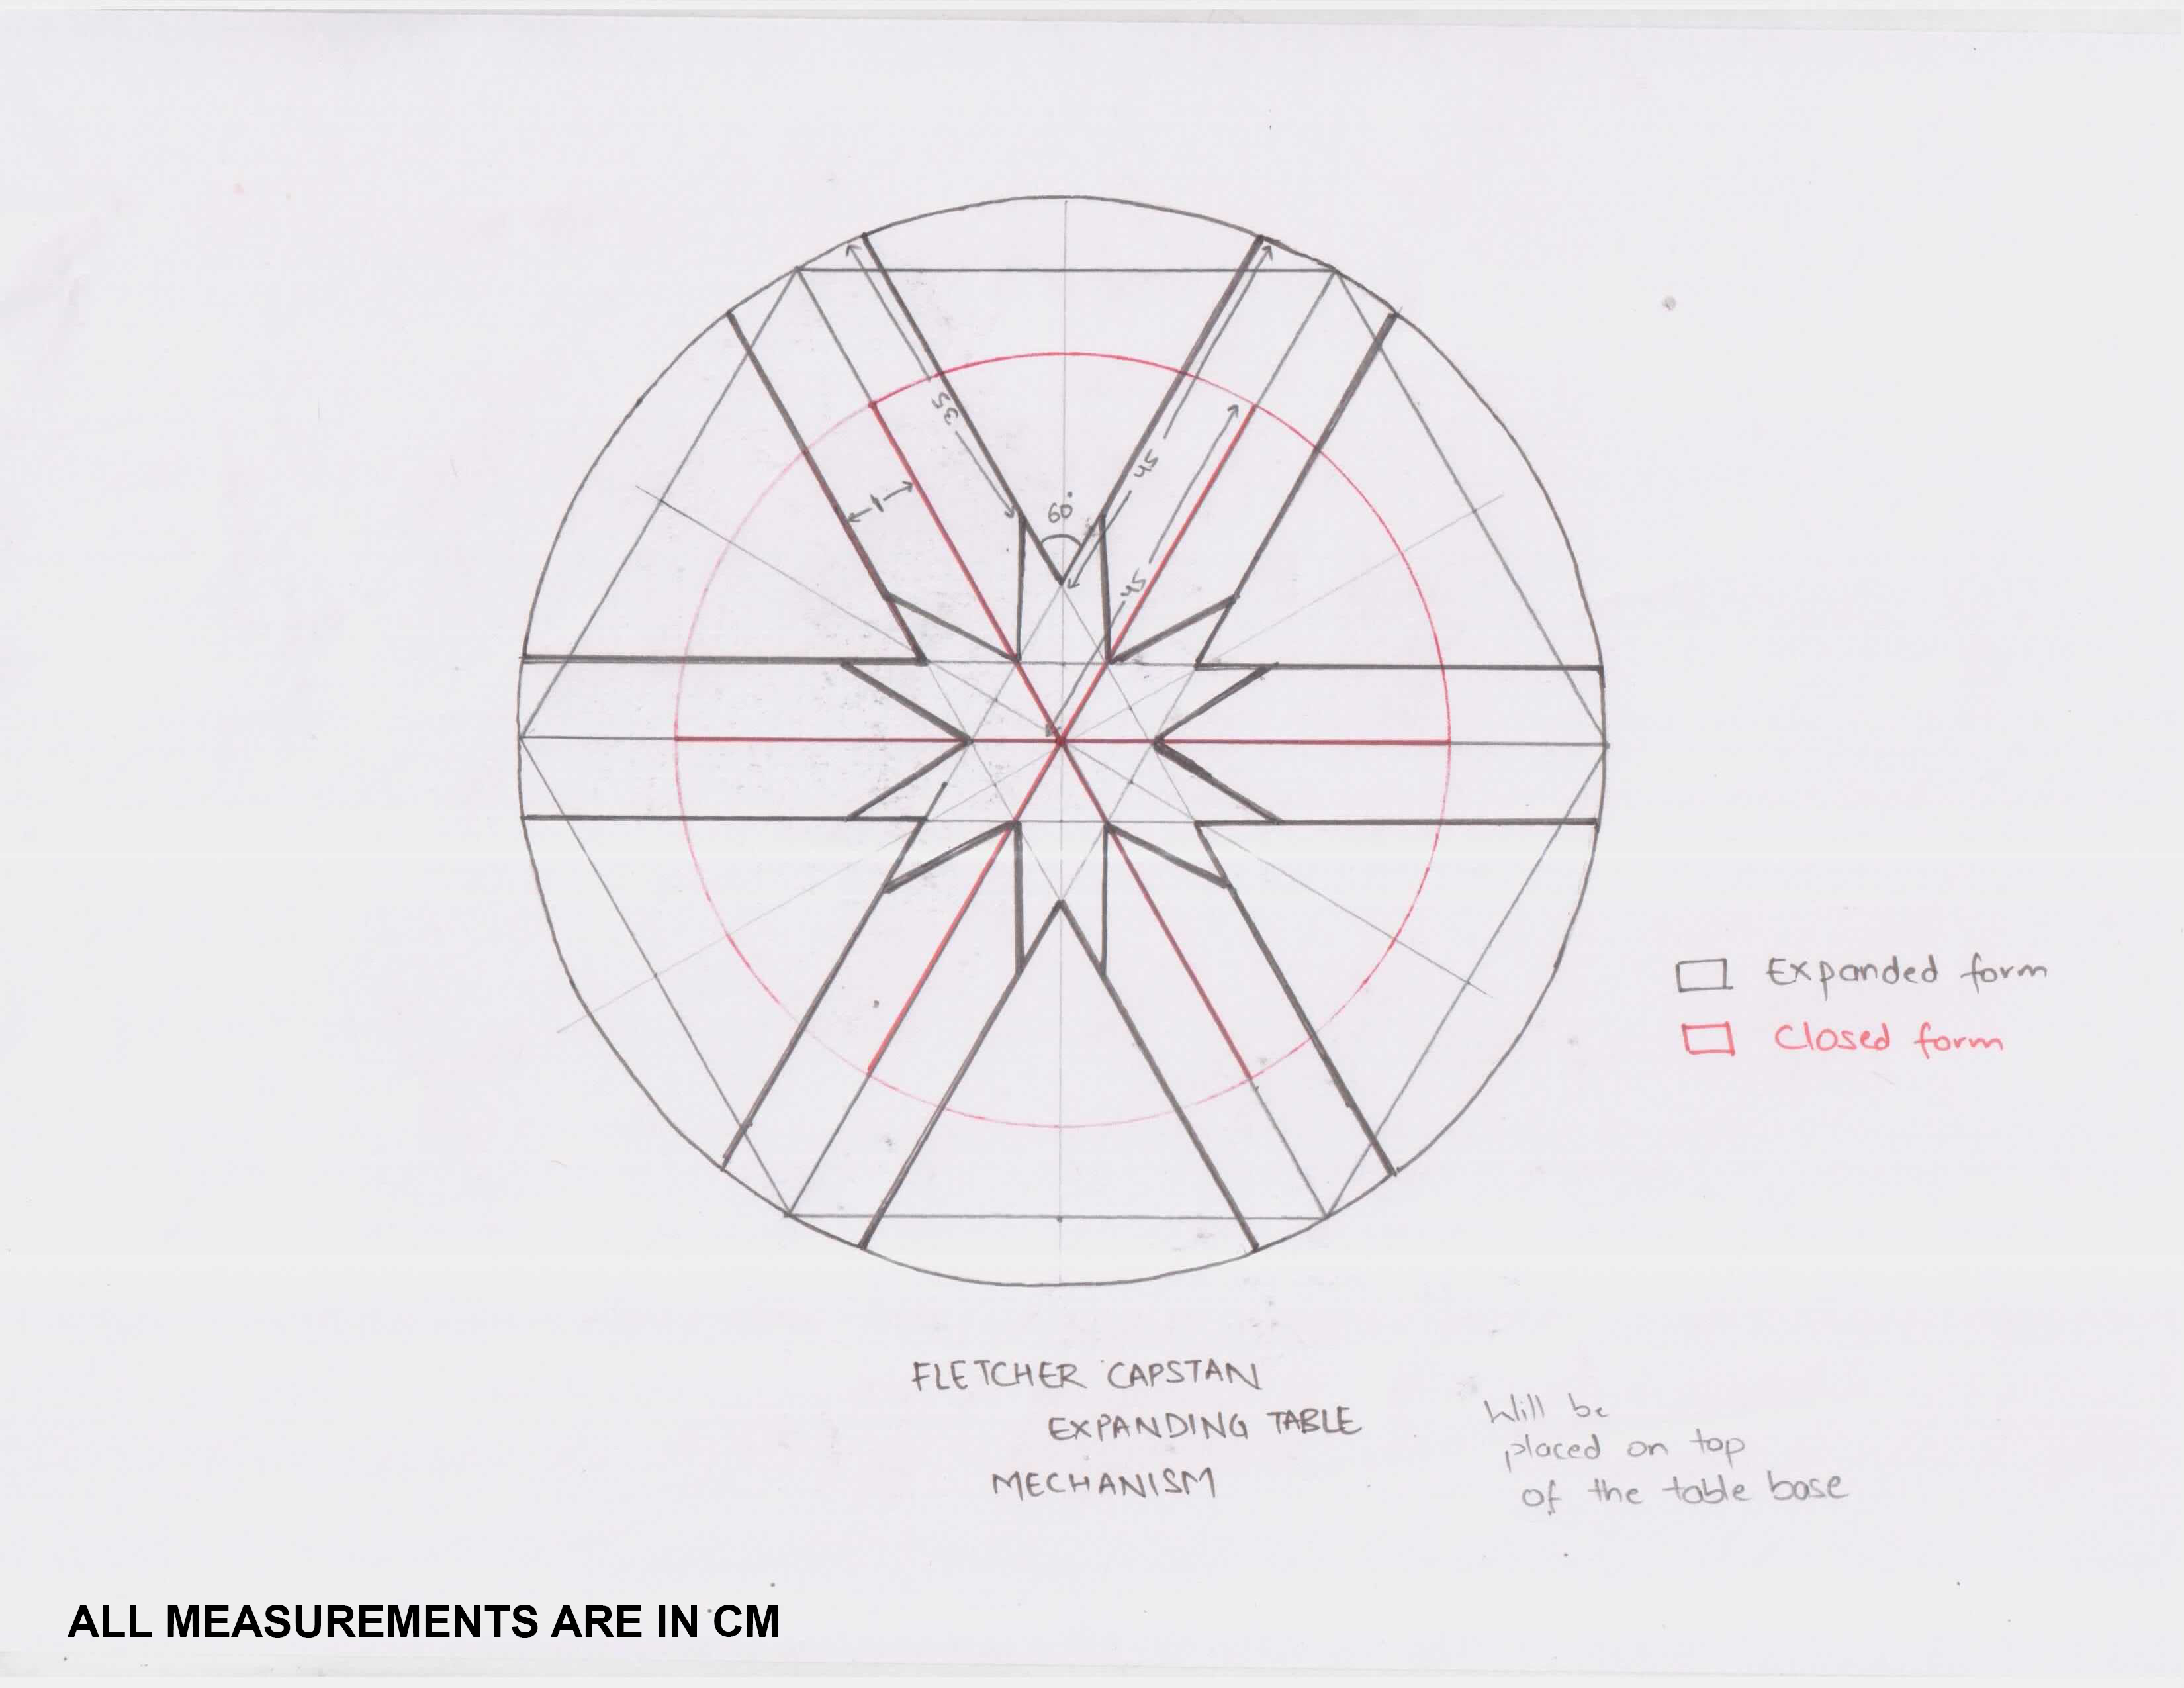 35
60°
45
1
45
Expanded form
Closed form
FLETCHER CAPSTAN
EXPANDING TABLE
MECHANISM
Will be
placed on top
of the table base
ALL MEASUREMENTS ARE IN CM